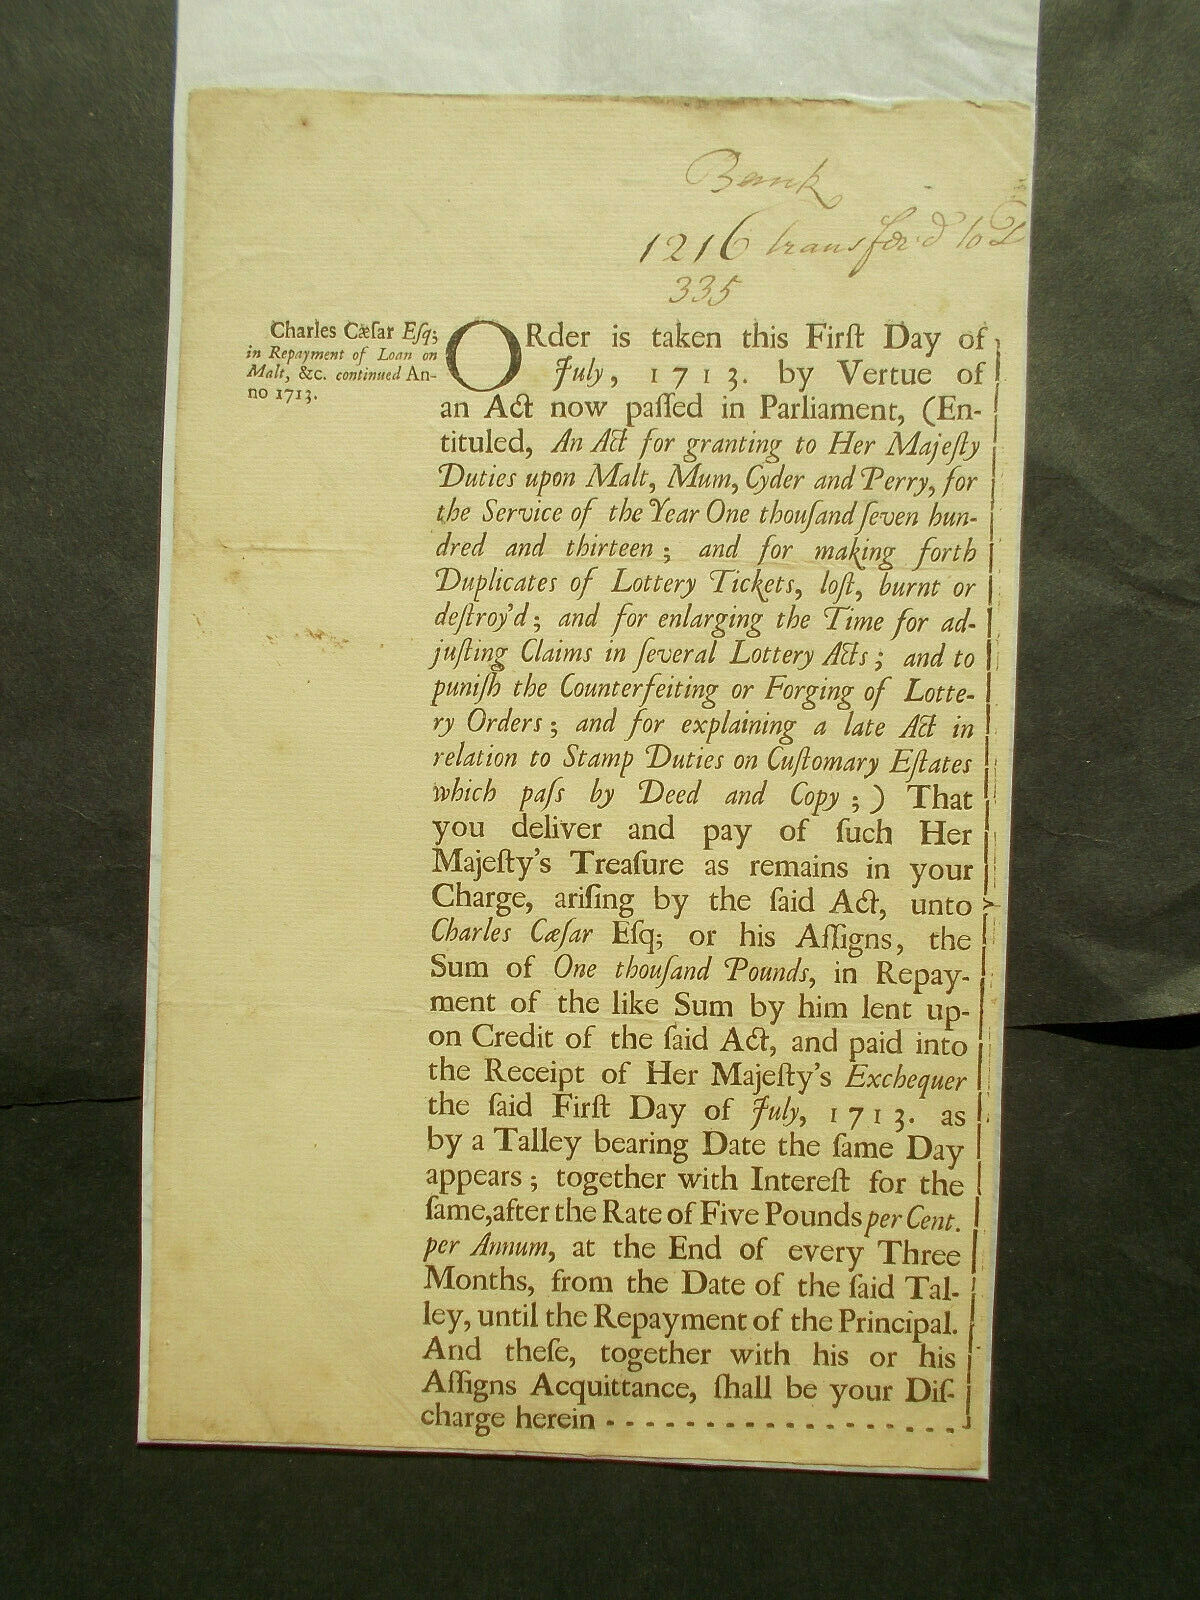 Bank
1216 transfer'd to
335
Charles Cæſar Eſq;
in Repayment of Loan on
Malt, &c. continued An-
no 1713.
ORder is taken this Firſt Day of
July, 1713. by Vertue of
an Act now paſſed in Parliament, (En-
tituled, An Act for granting to Her Majeſty
Duties upon Malt, Mum, Cyder and Perry, for
the Service of the Year One thouſand ſeven hun-
dred and thirteen; and for making forth
Duplicates of Lottery Tickets, loſt, burnt or
deſtroy'd; and for enlarging the Time for ad-
juſting Claims in ſeveral Lottery Acts; and to
puniſh the Counterfeiting or Forging of Lotte-
ry Orders; and for explaining a late Act in
relation to Stamp Duties on Cuſtomary Eſtates
which paſs by Deed and Copy;) That
you deliver and pay of ſuch Her
Majeſty's Treaſure as remains in your
Charge, ariſing by the ſaid Act, unto
Charles Cæſar Eſq; or his Aſſigns, the
Sum of One thouſand Pounds, in Repay-
ment of the like Sum by him lent up-
on Credit of the ſaid Act, and paid into
the Receipt of Her Majeſty's Exchequer
the ſaid Firſt Day of July, 1713. as
by a Talley bearing Date the ſame Day
appears; together with Intereſt for the
ſame, after the Rate of Five Pounds per Cent.
per Annum, at the End of every Three
Months, from the Date of the ſaid Tal-
ley, until the Repayment of the Principal.
And theſe, together with his or his
Aſſigns Acquittance, ſhall be your Diſ-
charge herein